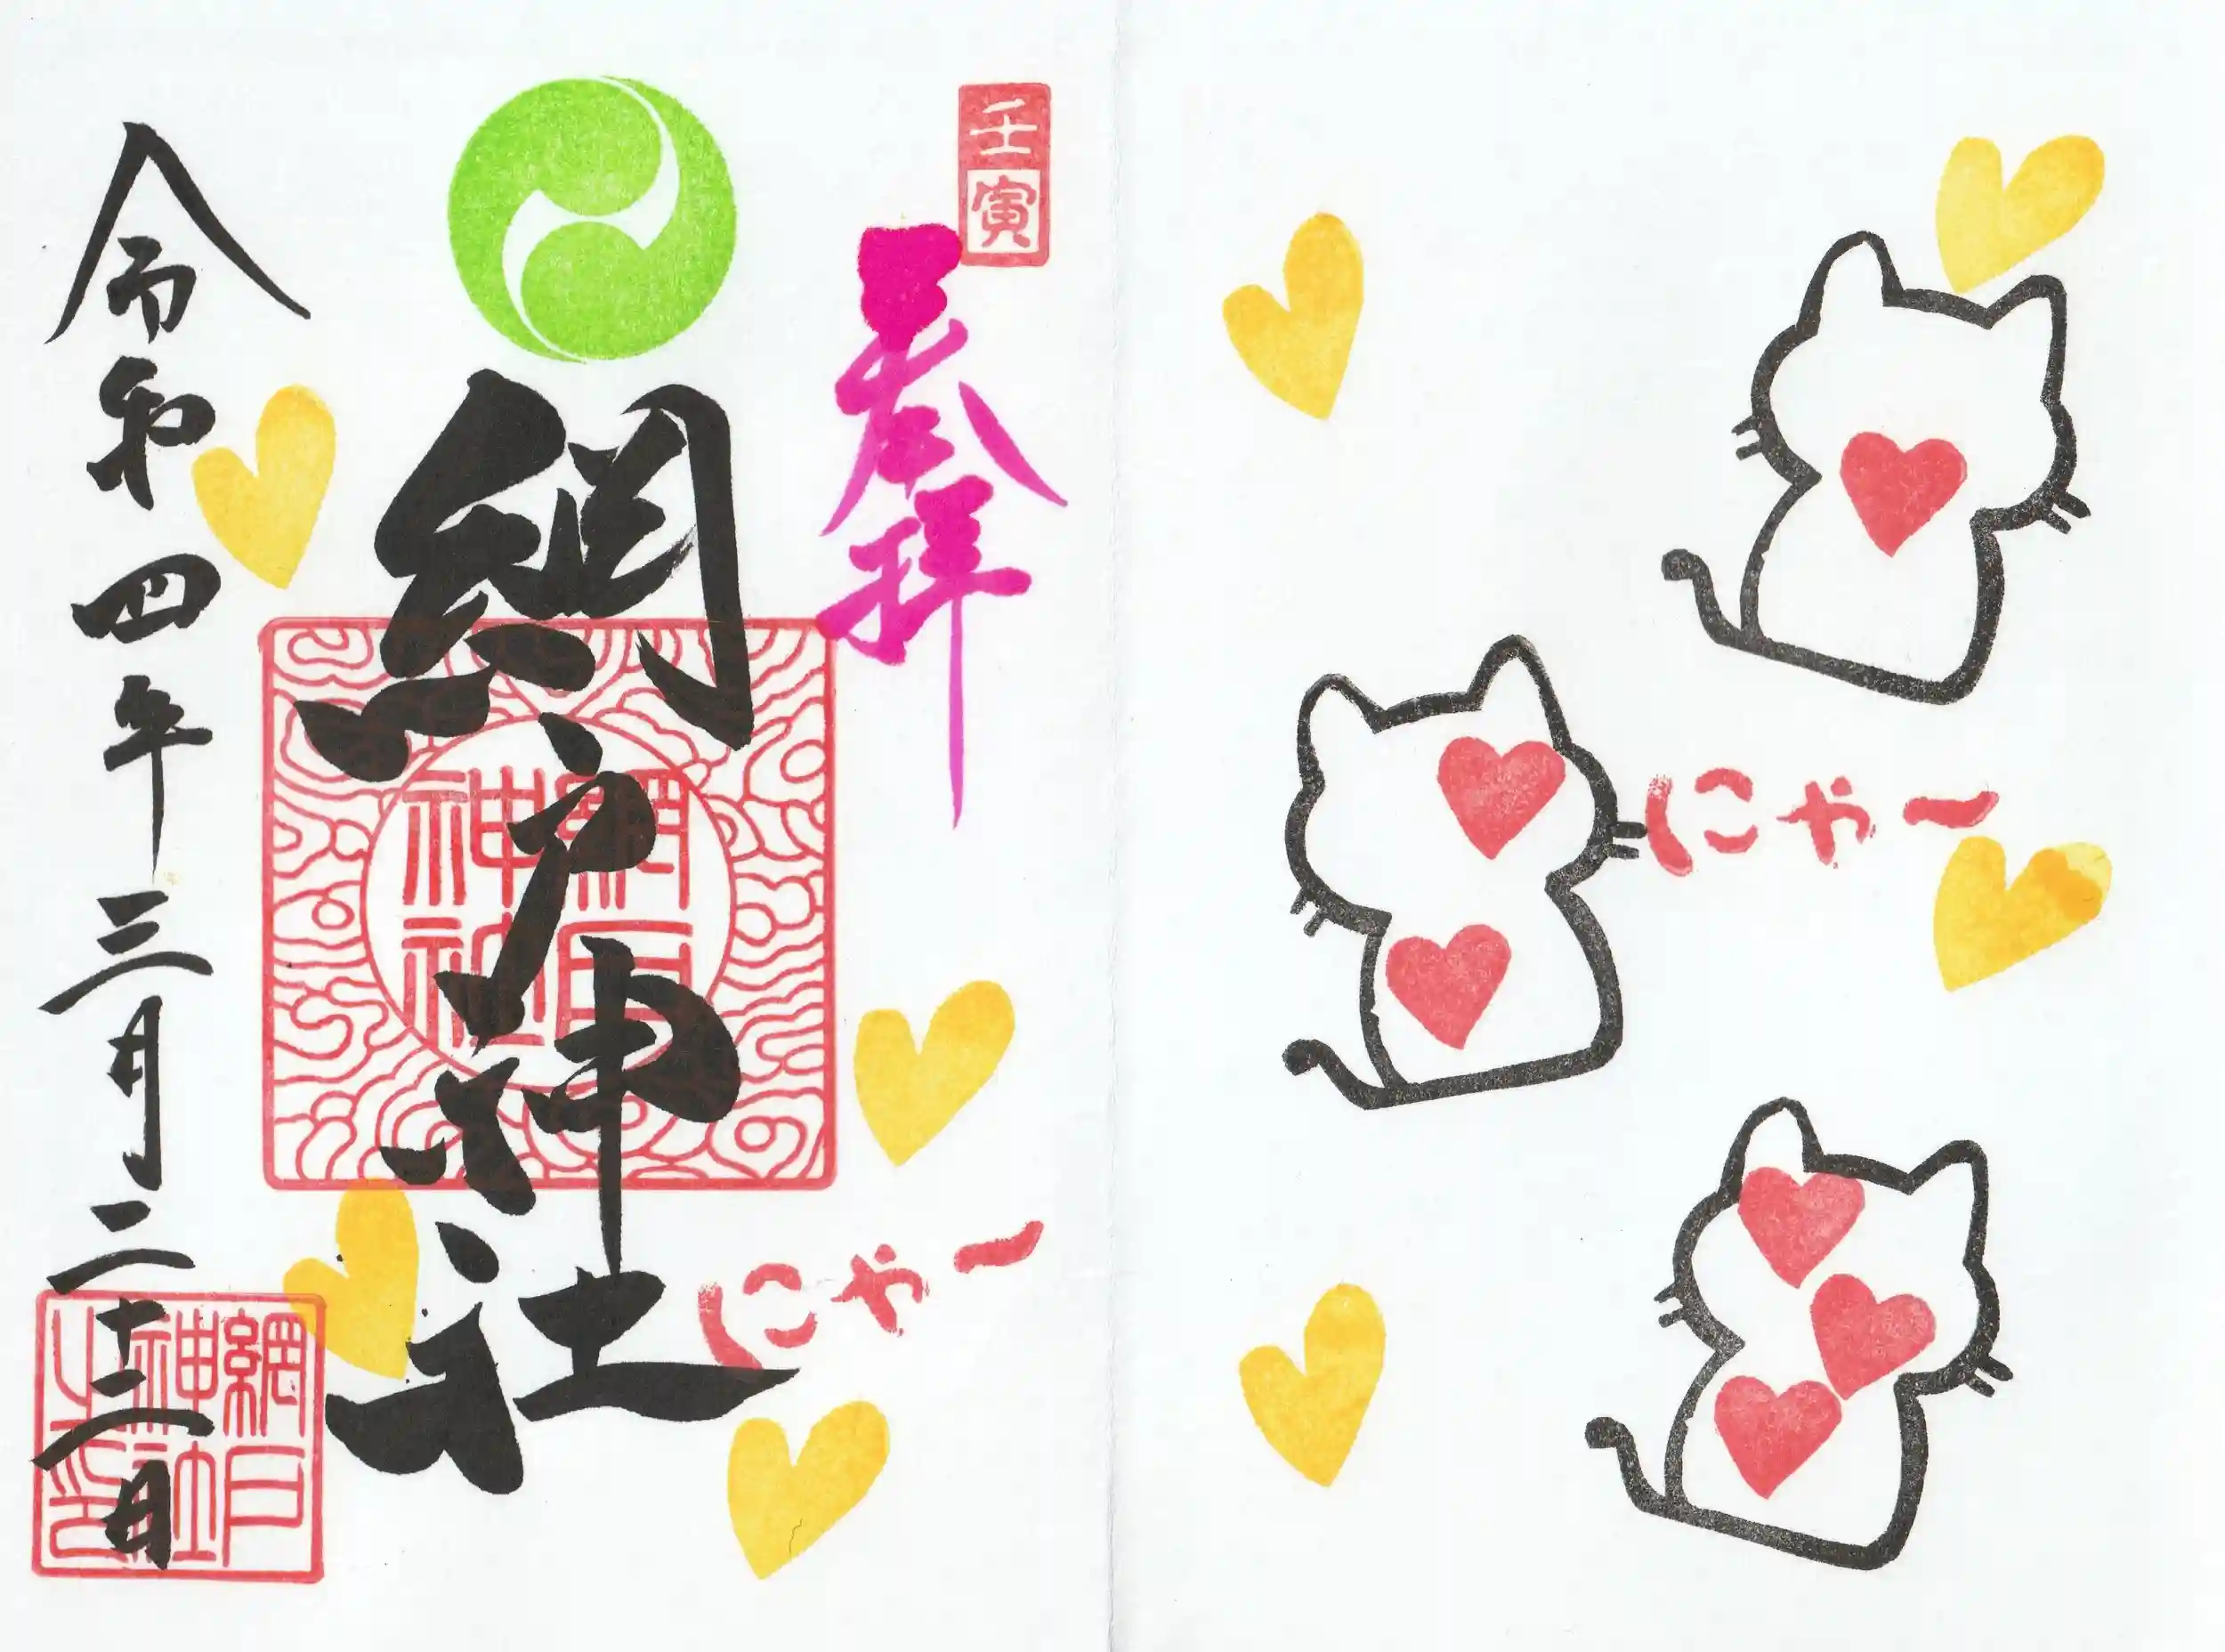 壬寅
奉拝
網戸神社
網戸神社
令和四年三月二十二日
網戸神社之印
にゃー
にゃー